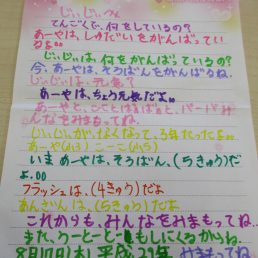 じぃじぃへ
てんごくで、何をしているの？
あーやは、しゅくだいをがんばってい
るよ。
じぃじぃは、何をがんばっているの？
今、あーやは、そろばんをがんばるね。
じぃじぃは、元気？
あーやは、ちょう元気だよ。
あーやと、ことはばぁばと、パードが
みんなをまもってね。
じぃじぃが、なくなって、3年たったよ。
あーや(小3) こーこ(小5)
いまあーやは、そろばん、(5きゅう)だ
よ。
フラッシュは、(4きゅう)だよ
あんざんは、(5きゅう)だよ。
これからも、みんなをみまもってね。
また、うーとーとーもしにくるからね。
8月17日(木) 平成29年 みまもってね